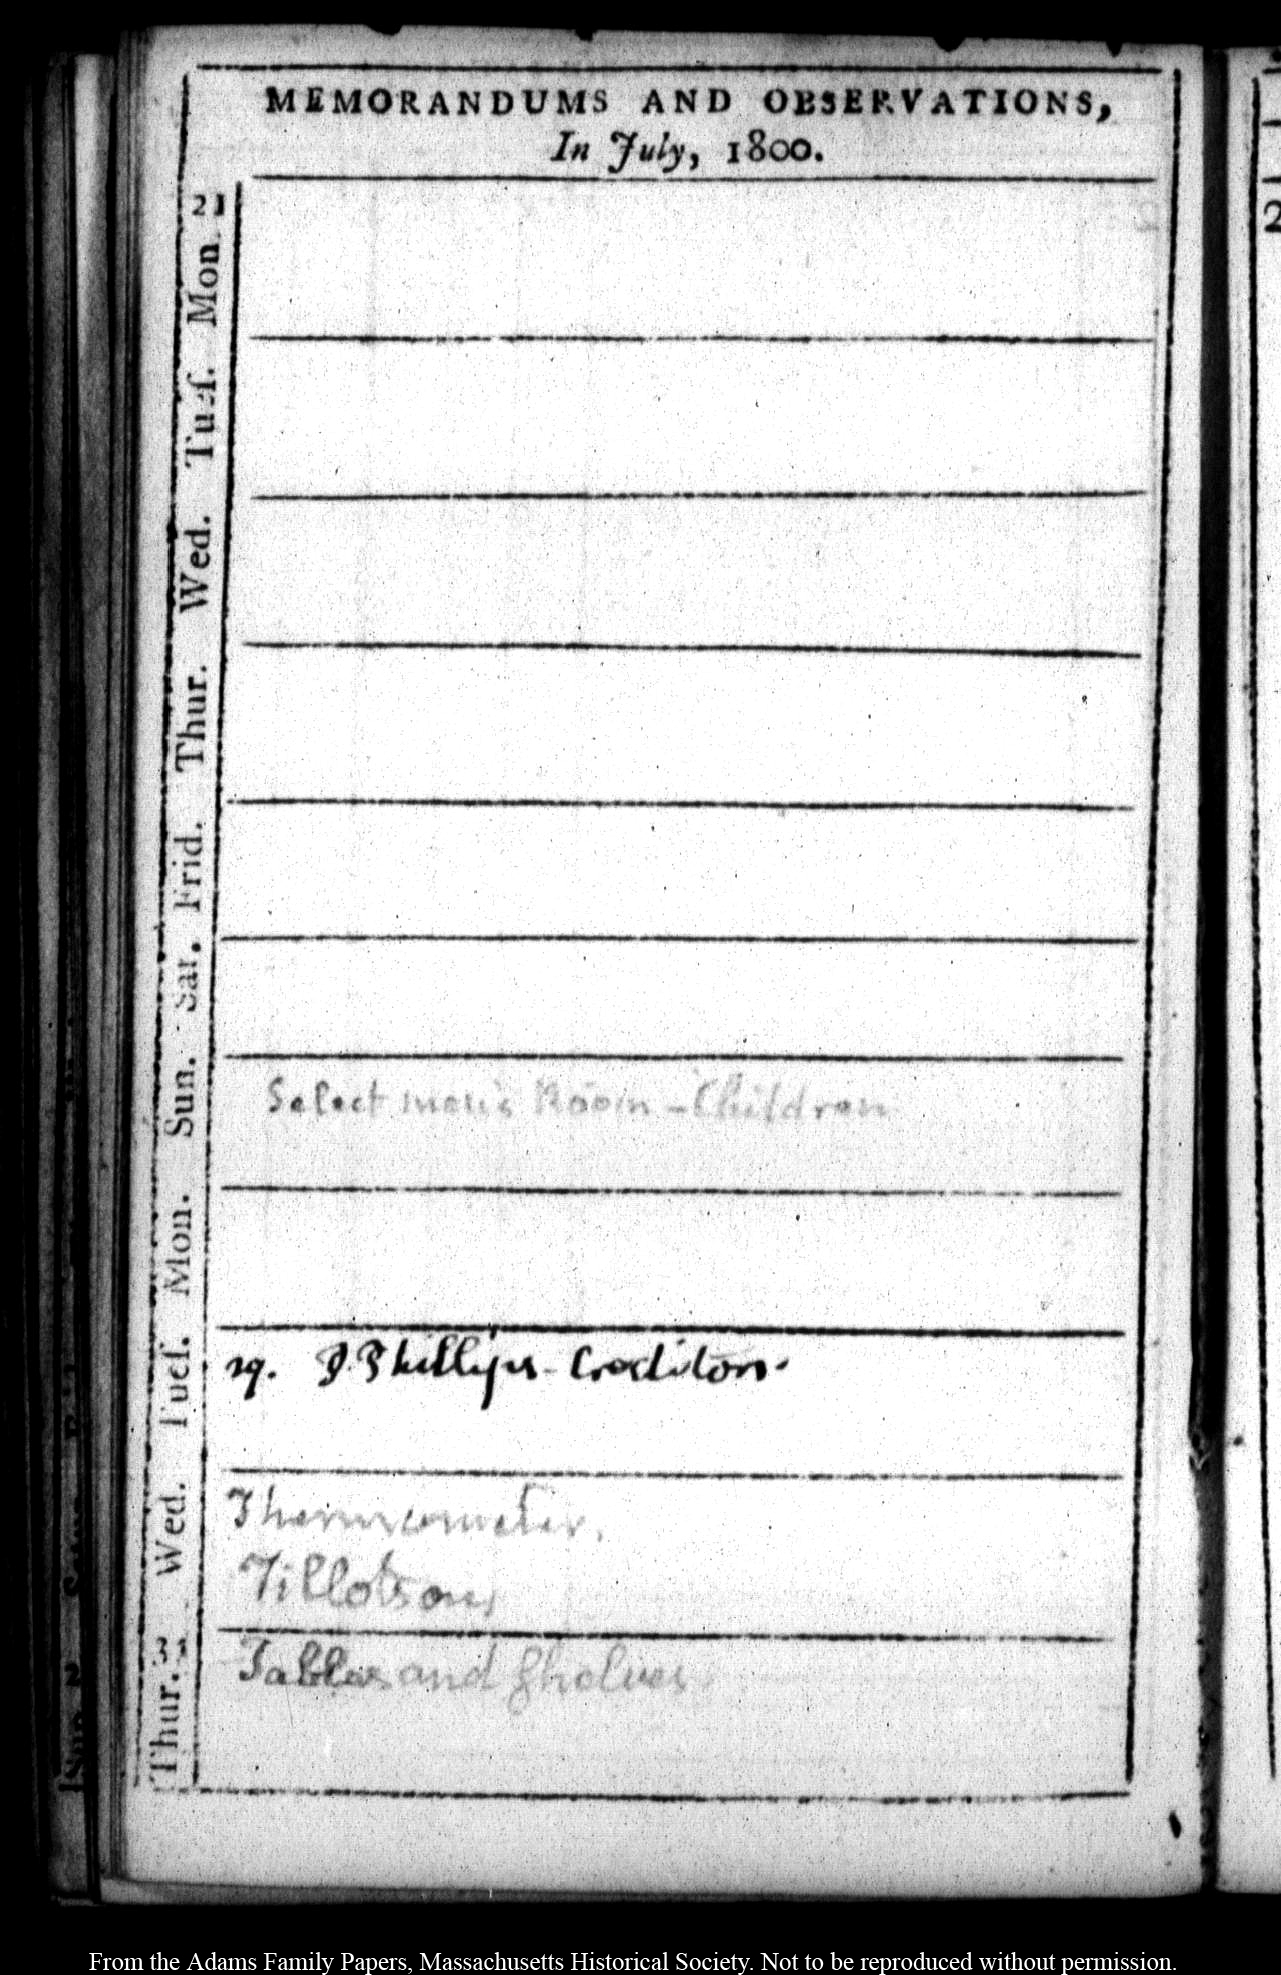 MEMORANDUMS AND OBSERVATIONS,
In July, 1800.
21
Mon
Tueſ.
Wed.
Thur.
Frid.
Sat.
Sun.
Select men's Room - Children
Mon.
Tueſ.
29. J. Phillips - Creditors.
Wed.
Thermometer.
Tillotson,
31
Thur.
Tables and Shelves.
2
From the Adams Family Papers, Massachusetts Historical Society. Not to be reproduced without permission.